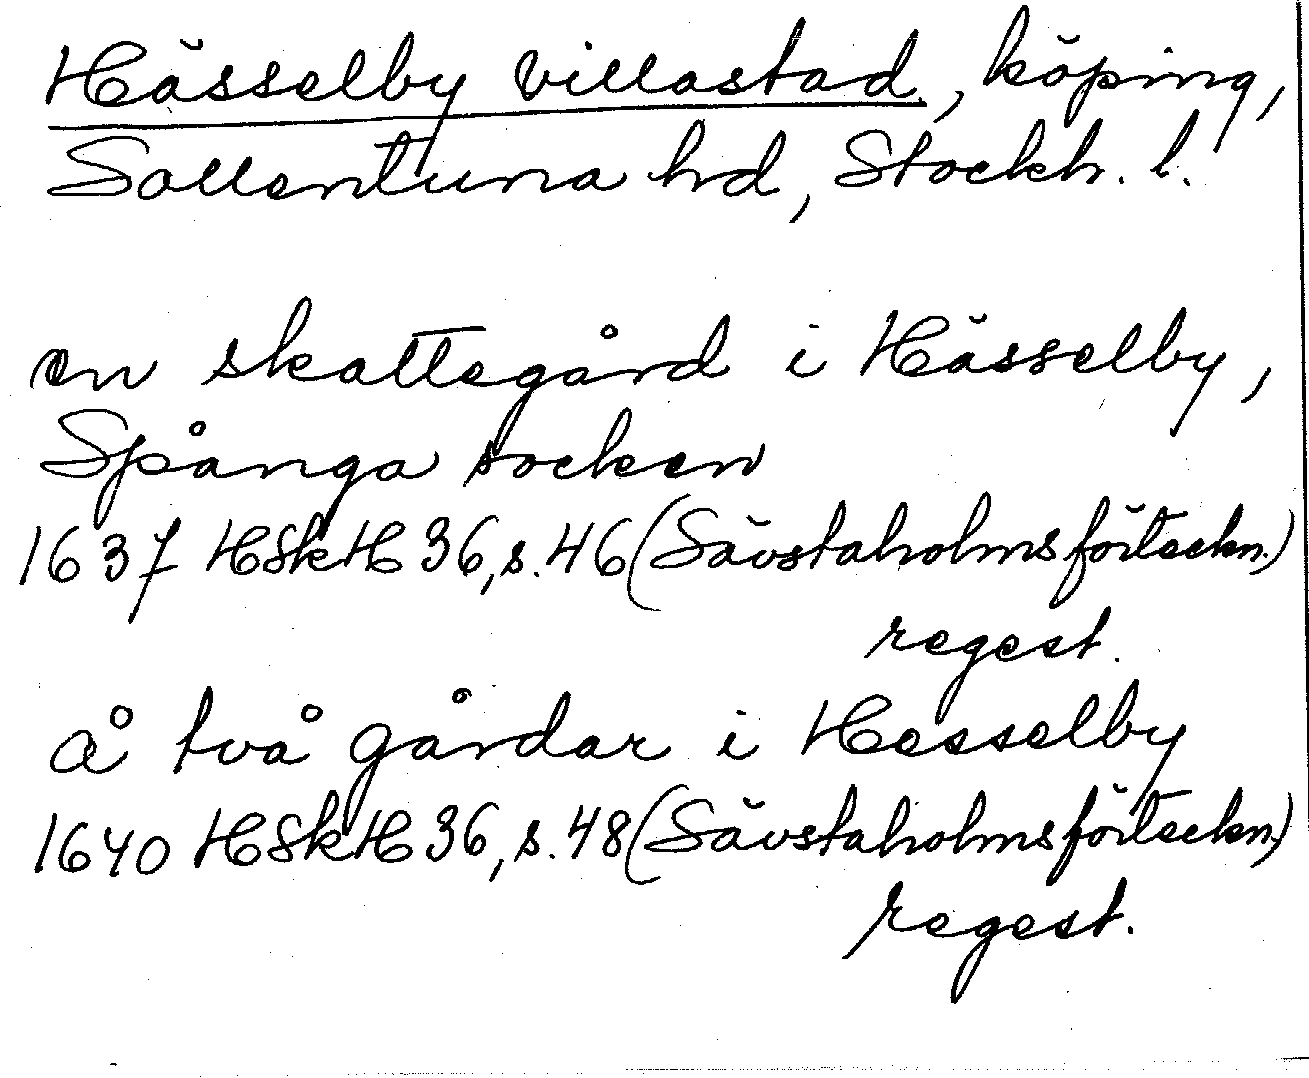 Hässelby villastad, köping,
Sollentuna hd, Stockh. l.
en skattegård i Hässelby,
Spånga socken
1637 HSkH 36, s. 46 (Sävstaholmsförteckn.)
regest.
å två gårdar i Hesselby
1640 HSkH 36, s. 48 (Sävstaholmsförteckn.)
regest.